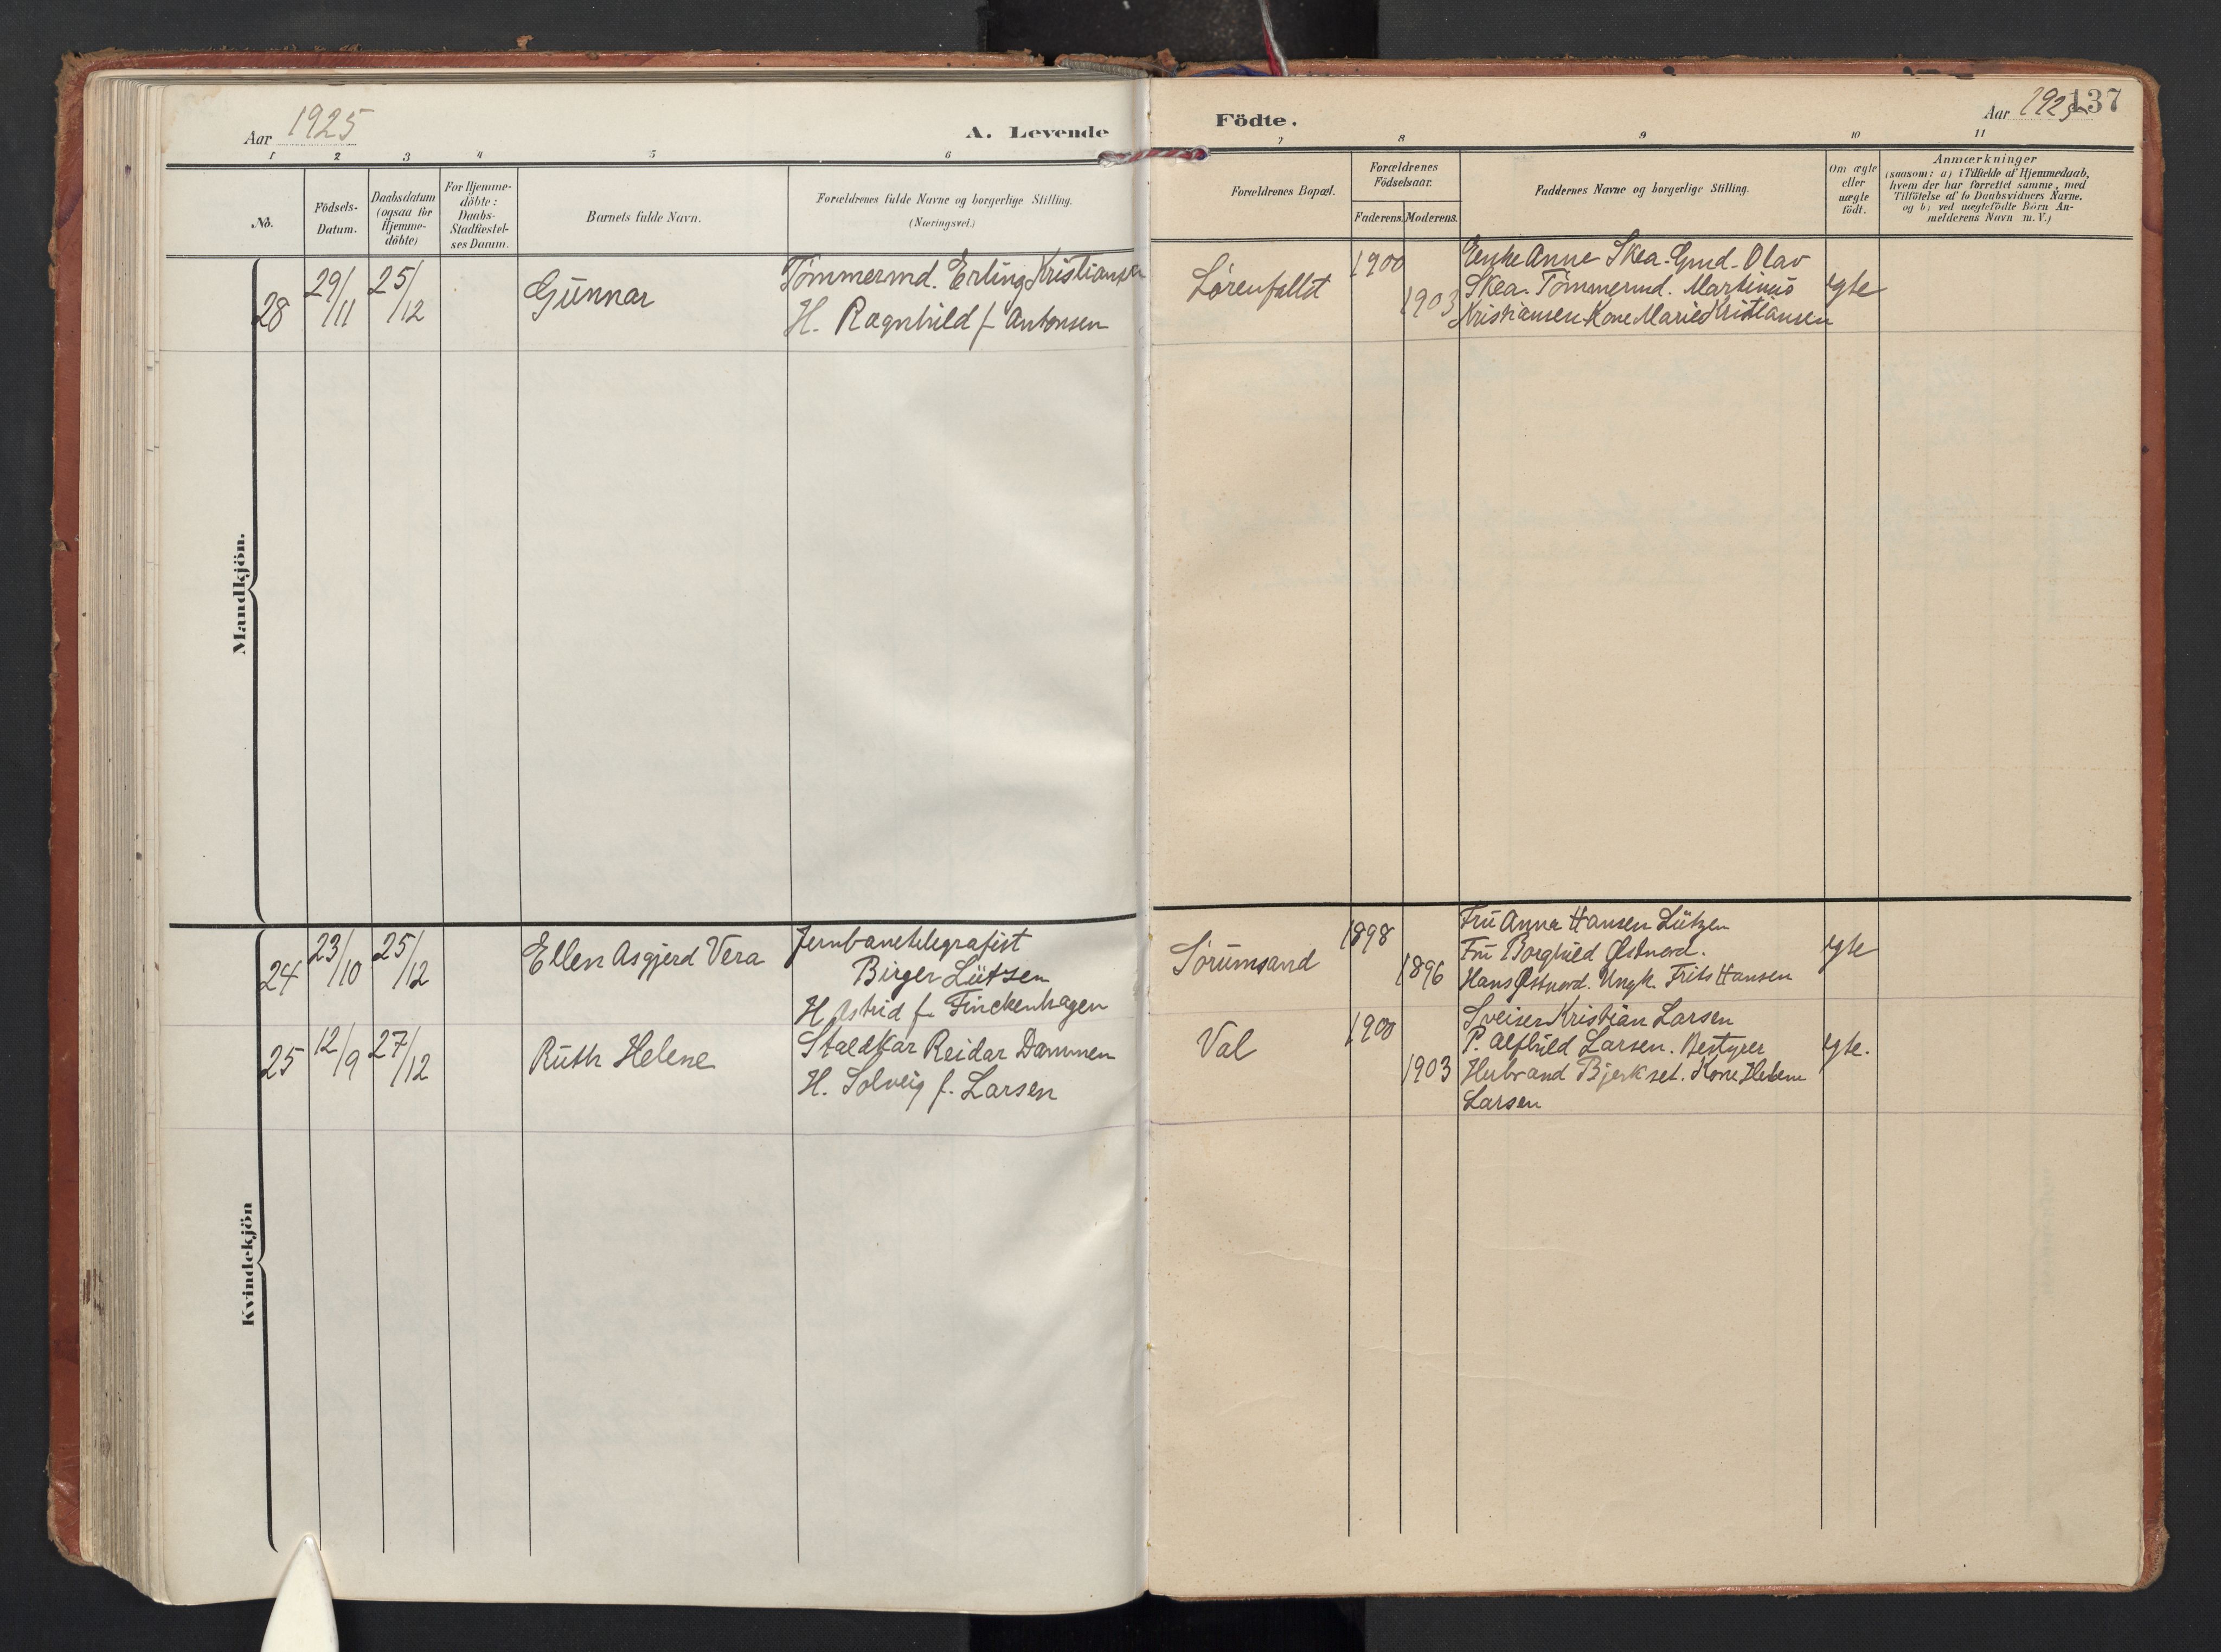 Aar 1925
A. Levende
Födte.
Aar 1925
137
1 2 3 4 5 6 7 8 9 10 11
No.
Födsels-
Datum.
Daabsdatum
(ogsaa for
Hjemme-
döbte)
For Hjemme-
döbte:
Daabs-
Stadfæstel-
ses Datum.
Barnets fulde Navn.
Forældrenes fulde Navne og borgerlige Stilling.
(Næringsvei.)
Forældrenes Bopæl.
Forældrenes
Födselsaar.
Faderens.
Moderens.
Faddernes Navne og borgerlige Stilling.
Om ægte
eller
uægte
födt.
Anmærkninger
(saasom: a) i Tilfælde af Hjemmedaab,
hvem der har forrettet samme, med
Tilföielse af to Daabsvidners Navne.
og b) ved uægtefödte Börn An-
melderens Navn m. V.)
Mandkjön.
28
29/11
25/12
Gunnar
Tømmermd. Erling Kristiansen
H. Ragnhild f. Antonsen
Lørenfallet
1900
1903
Enke Anne Skea. Gmd. Olav
Skea. Tømmermd. Martinus
Kristiansen Kone Marie Kristiansen
egte
Kvindekjön
24
23/10
25/12
Ellen Asgjerd Vera
Jernbanetelegrafist
Birger Lützen
H. Astrid f. Finckenhagen
Sørumsand
1898
1896
Fru Anna Hansen Lützen
Fru Borghild Østnord.
Hans Østnord. Ungk. Frits Hansen
egte
25
12/9
27/12
Ruth Helene
Staldkar Reidar Dammen
H. Solveig f. Larsen
Val
1900
1903
Sveiser Kristian Larsen
P. Alfhild Larsen. Bestyrer
Herbrand Bjerkset. Kone Helene
Larsen
egte.